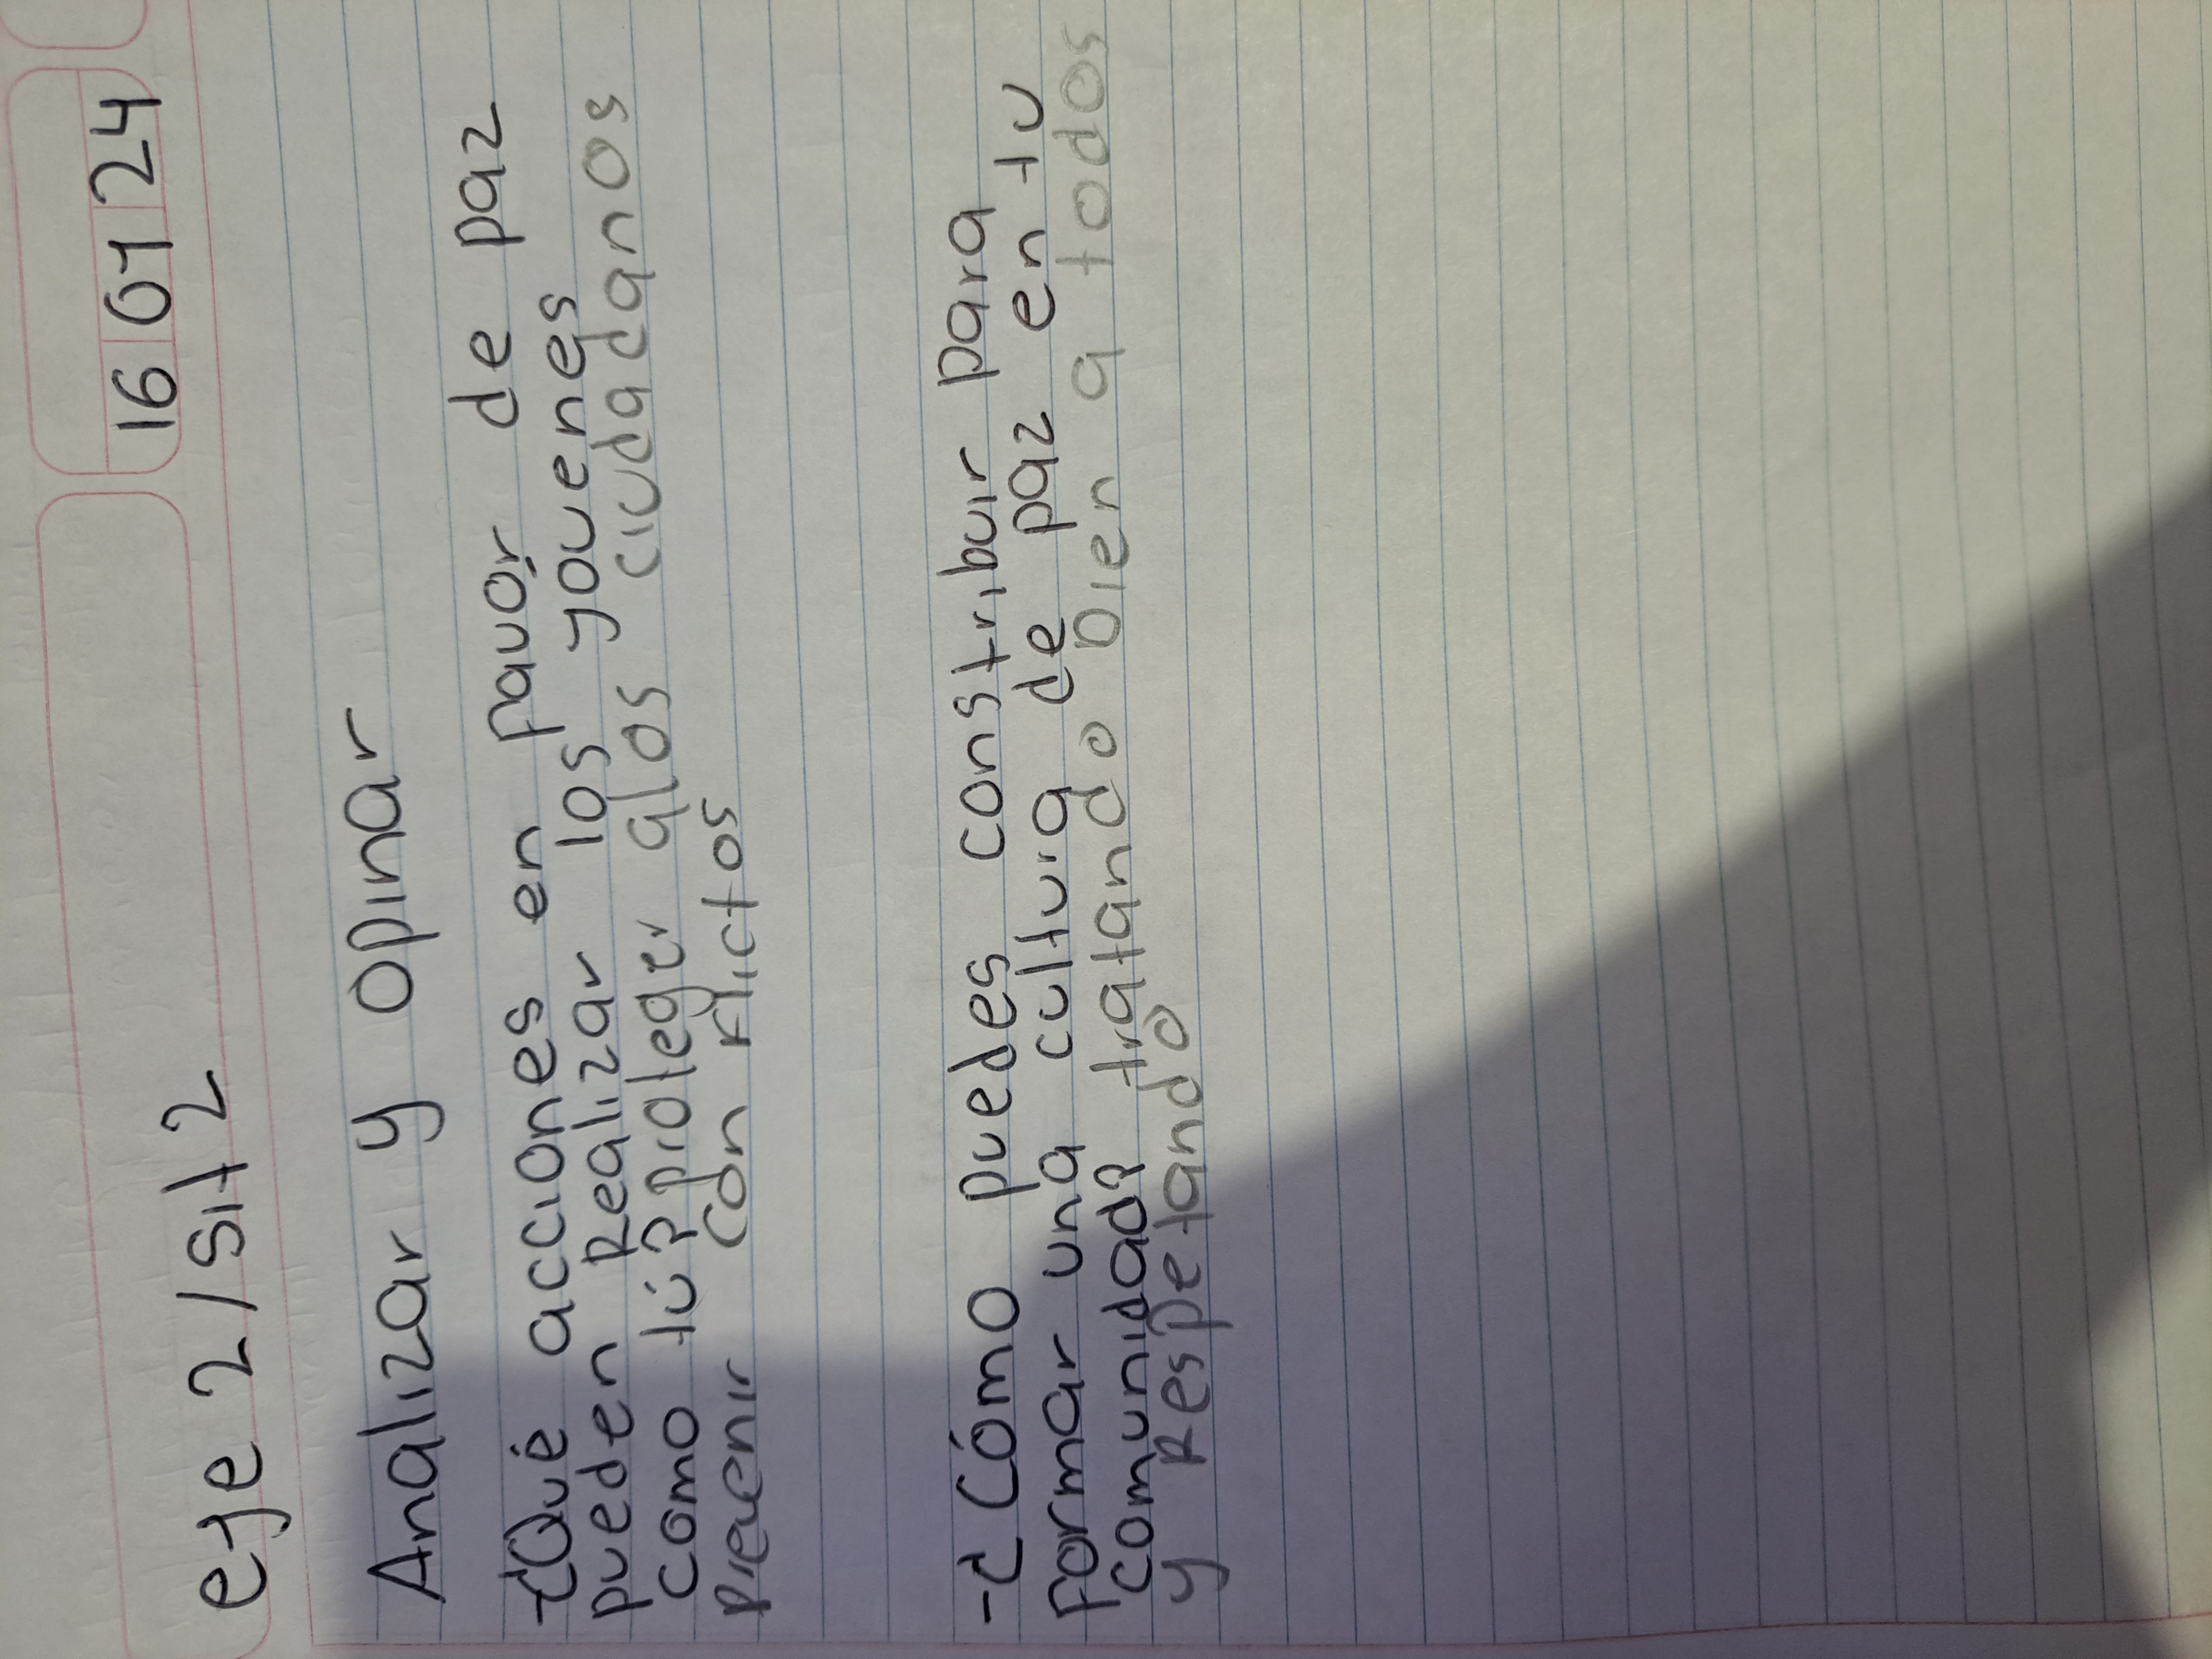 16 01 24
eje 2/sit 2
Analizar y opinar
-¿Qué acciones en favor de paz
pueden Realizar los youenes
como tú? proteger alos ciudadanos
prevenir con flictos
-¿Cómo puedes constribuir para
formar una cultura de paz en tu
comunidad? tratando bien a todos
y Respetando